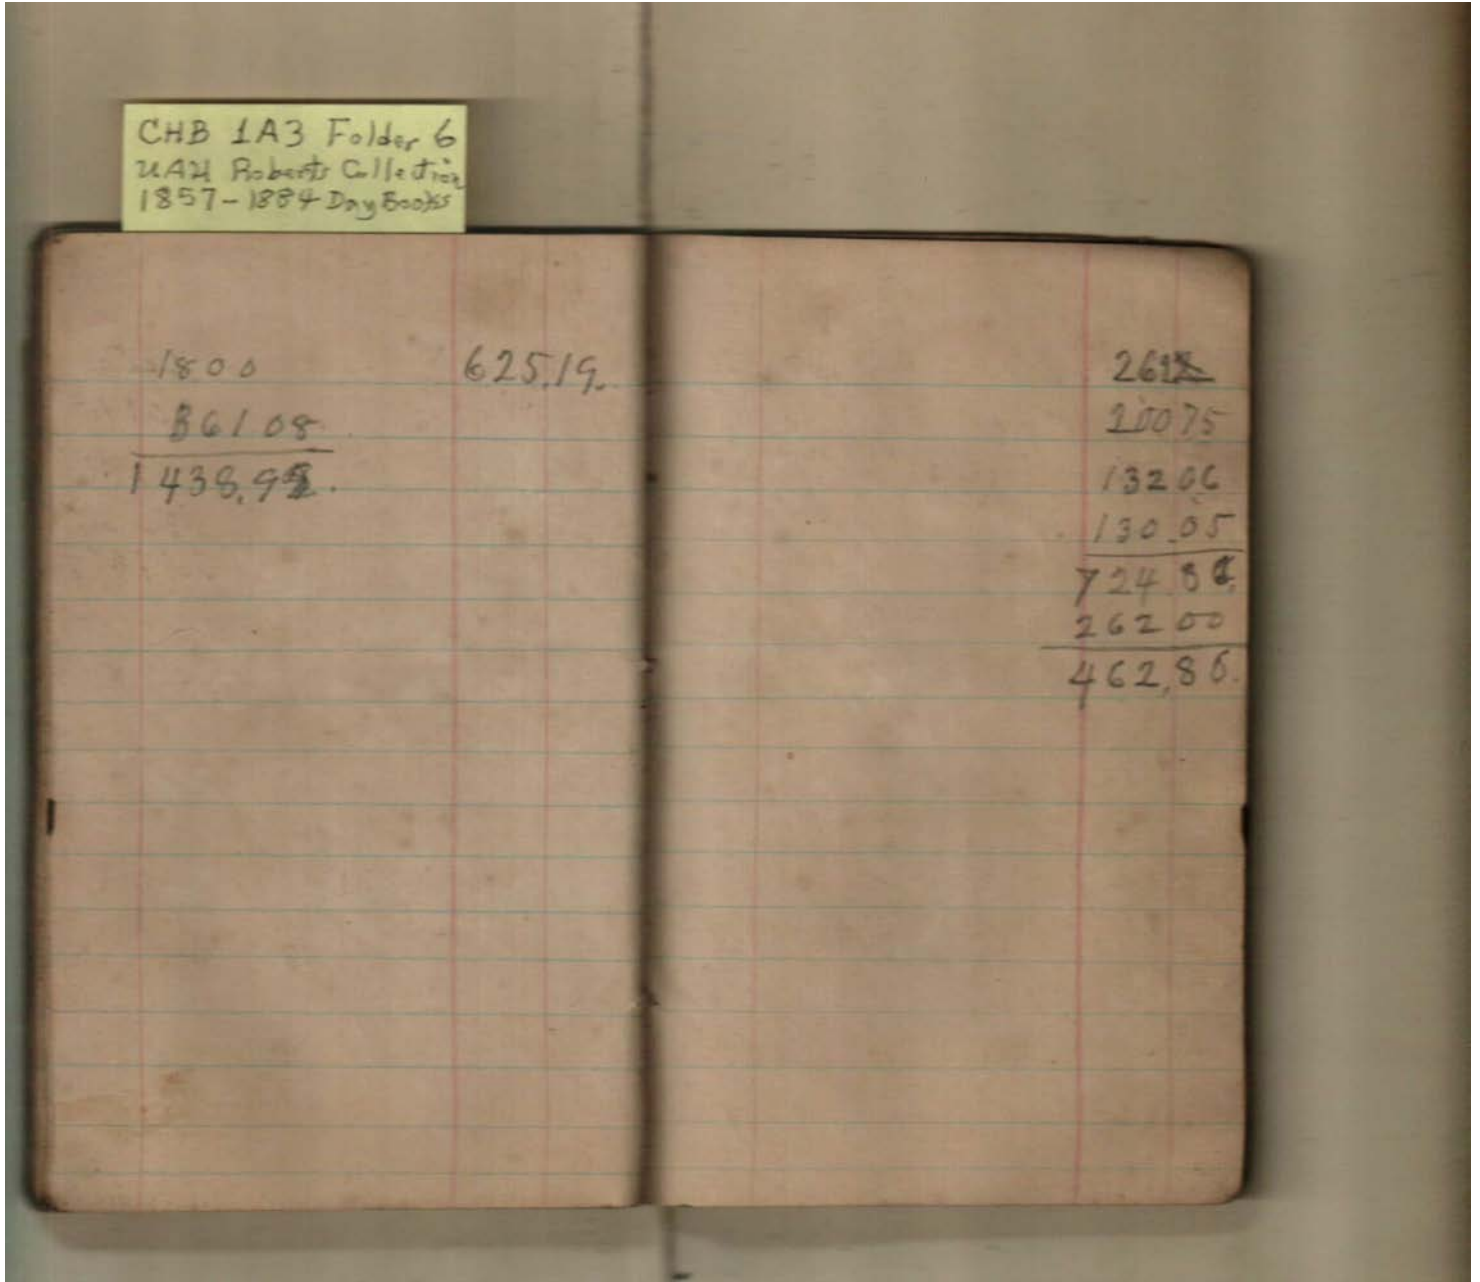 CHB 1A3 Folder 6
UAH Roberts Collection
1857-1884 Day Books
1800
36108
1438.92.
625.19.
20075
13206
130.05
724.86.
26200
462,86.